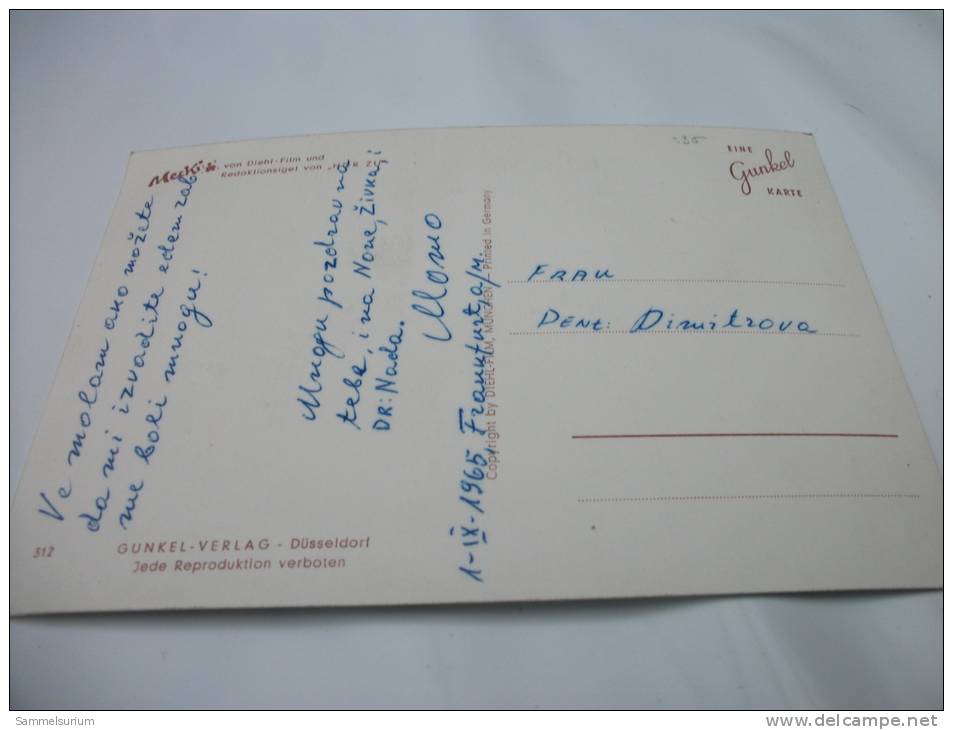 Mecki von Diehl-Film und
Redaktionsigel von „HÖR ZU“
Ve molam ako možete
da mi izvadite eden zab
me boli mnogu!
Mnogu pozdrav na
tebe, i na None, Živka, i
DR: Nada.
Momo
1-IX-1965 Frankfurt a/M.
312
GUNKEL-VERLAG - Düsseldorf
Jede Reproduktion verboten
Copyright by DIEHL-FILM, MÜNCHEN - Printed in Germany
35
EINE
Gunkel
KARTE
FRAU
DENT: Dimitrova
Sammelsurium
www.delcampe.net